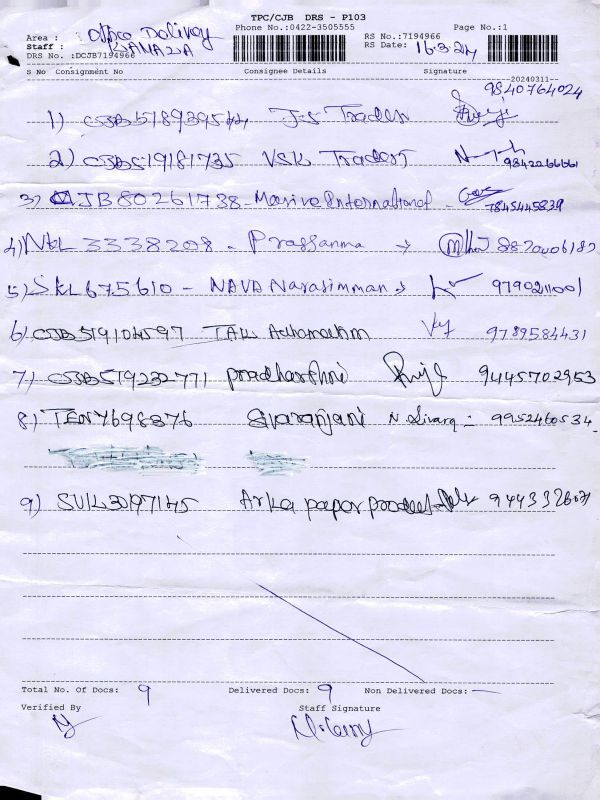 TPC/CJB DRS - P103
Area : Office Delivery Phone No.:0422-3505555 Page No.:1
Staff : KAMALA RS No.:7194966
DRS No. :DCJB7194966 RS Date: 16.3.24
S No Consignment No Consignee Details Signature
20240311--
9840764024
1) CJB518939544 J.S Traders
2) CJB519181735 VSK Traders 9842266661
3) CJB80261738 - Marine International - 7845445829
4) NKL 3338208 - Prassanna → 8870006182
5) SKL675610 - NAVA Narasimman → 9790211001
6) CJB519104597 9789584431
7) CJB519232771 Pradharshni 9445702953
8) TEN7698876 Sivaranjani N. 9952460534
9) SVK3097145 Arka paper product
Total No. Of Docs: 9 Delivered Docs: 9 Non Delivered Docs: —
Verified By Staff Signature